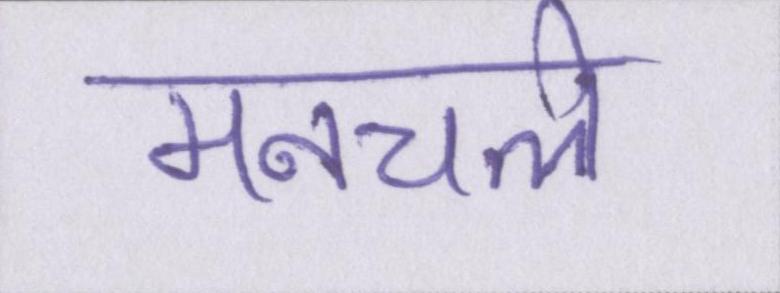 मनचली